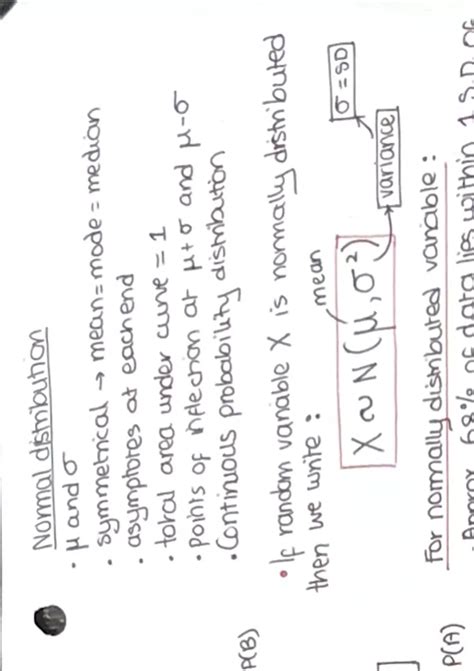 Normal distribution
• μ and σ
• symmetrical → mean = mode = median
• asymptotes at each end
• total area under curve = 1
• points of inflection at μ+σ and μ-σ
• Continuous probability distribution
P(B)
• If random variable X is normally distributed
then we write :
mean
X ~ N(μ, σ²)
variance
σ = SD
For normally distributed variable :
P(A)
• Approx 68% of data lies within 1 S.D. of